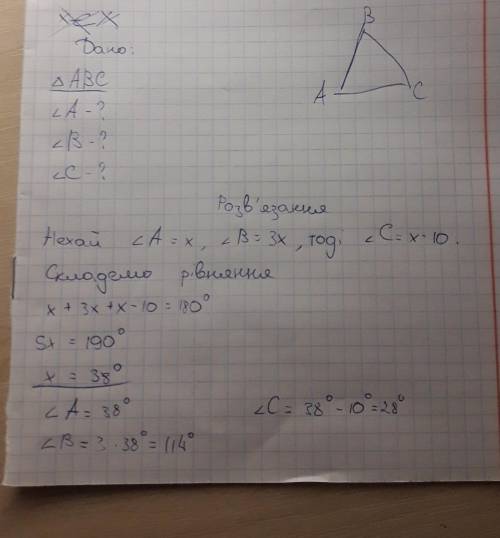 Дано:
B
△ABC
A
C
∠A - ?
∠B - ?
∠C - ?
Розв'язання
Нехай ∠A = x, ∠B = 3x, тоді ∠C = x - 10.
Складемо рівняння
x + 3x + x - 10 = 180°
5x = 190°
x = 38°
∠A = 38°
∠C = 38° - 10° = 28°
∠B = 3 · 38° = 114°